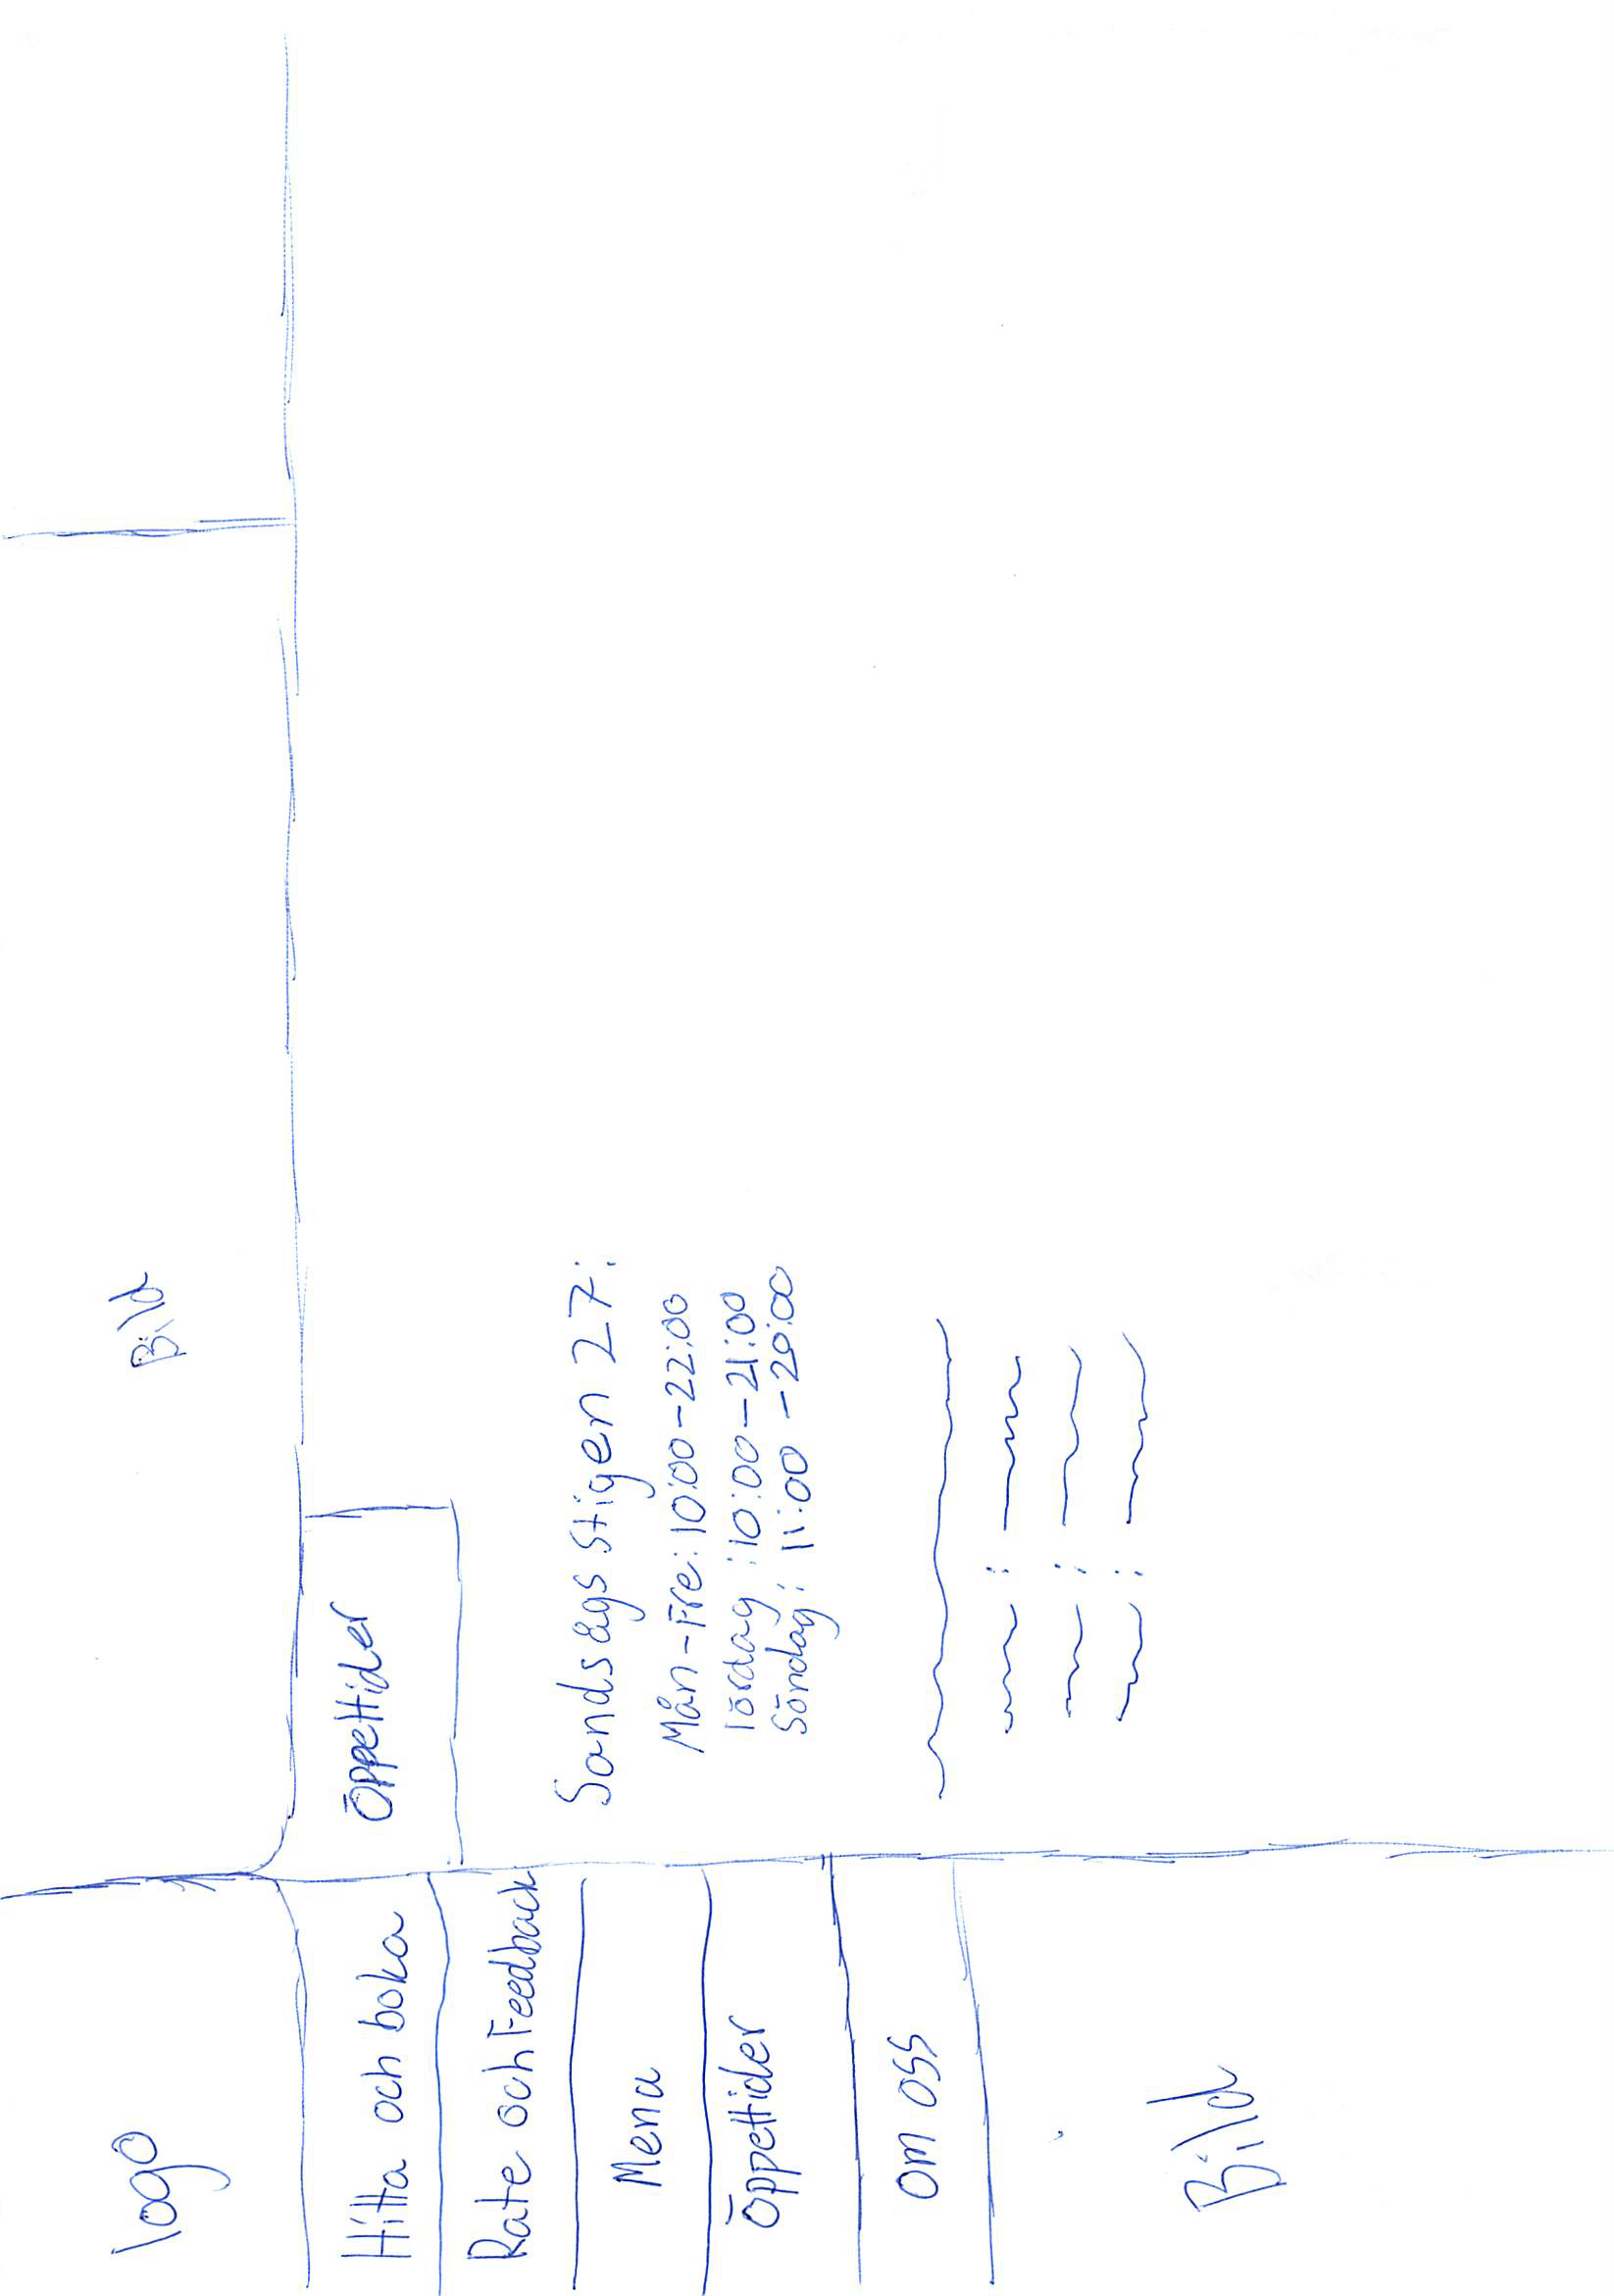 logo
Bild
Hitta och boka
Rate och Feedback
Menu
Öppettider
om oss
Bild
Öppettider
Sandsågsstigen 27:
Mån-Fre: 10:00-22:00
Lördag: 10:00-21:00
Söndag: 11:00-20:00